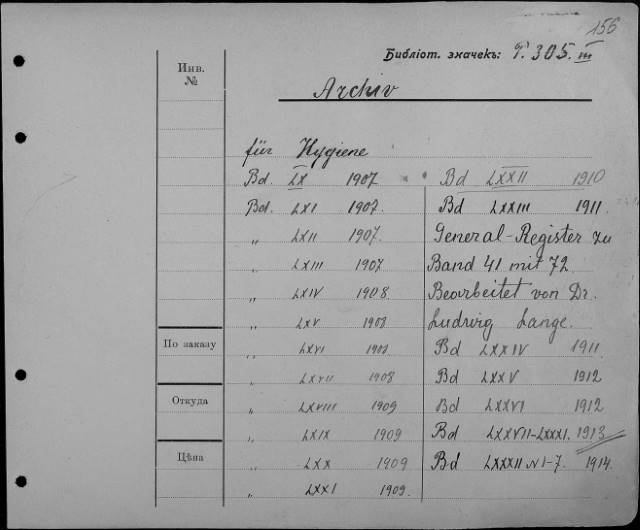 156
Библіот. значекъ: Г. 305. III
Инв. №
Archiv
für Hygiene
Bd. LX 1907
Bd. LXI 1907.
„ LXII 1907.
„ LXIII 1907
„ LXIV 1908.
„ LXV 1908
„ LXVI 1908
„ LXVII 1908
„ LXVIII 1909
„ LXIX 1909
„ LXX 1909
„ LXXI 1909.
Bd LXXII 1910
Bd LXXIII 1911.
General-Register zu
Band 41 mit 72.
Bearbeitet von Dr.
Ludwig Lange.
Bd LXXIV 1911
Bd LXXV 1912
Bd LXXVI 1912
Bd LXXVII-LXXXI. 1913
Bd LXXXII N1-7. 1914.
По заказу
Откуда
Цѣна